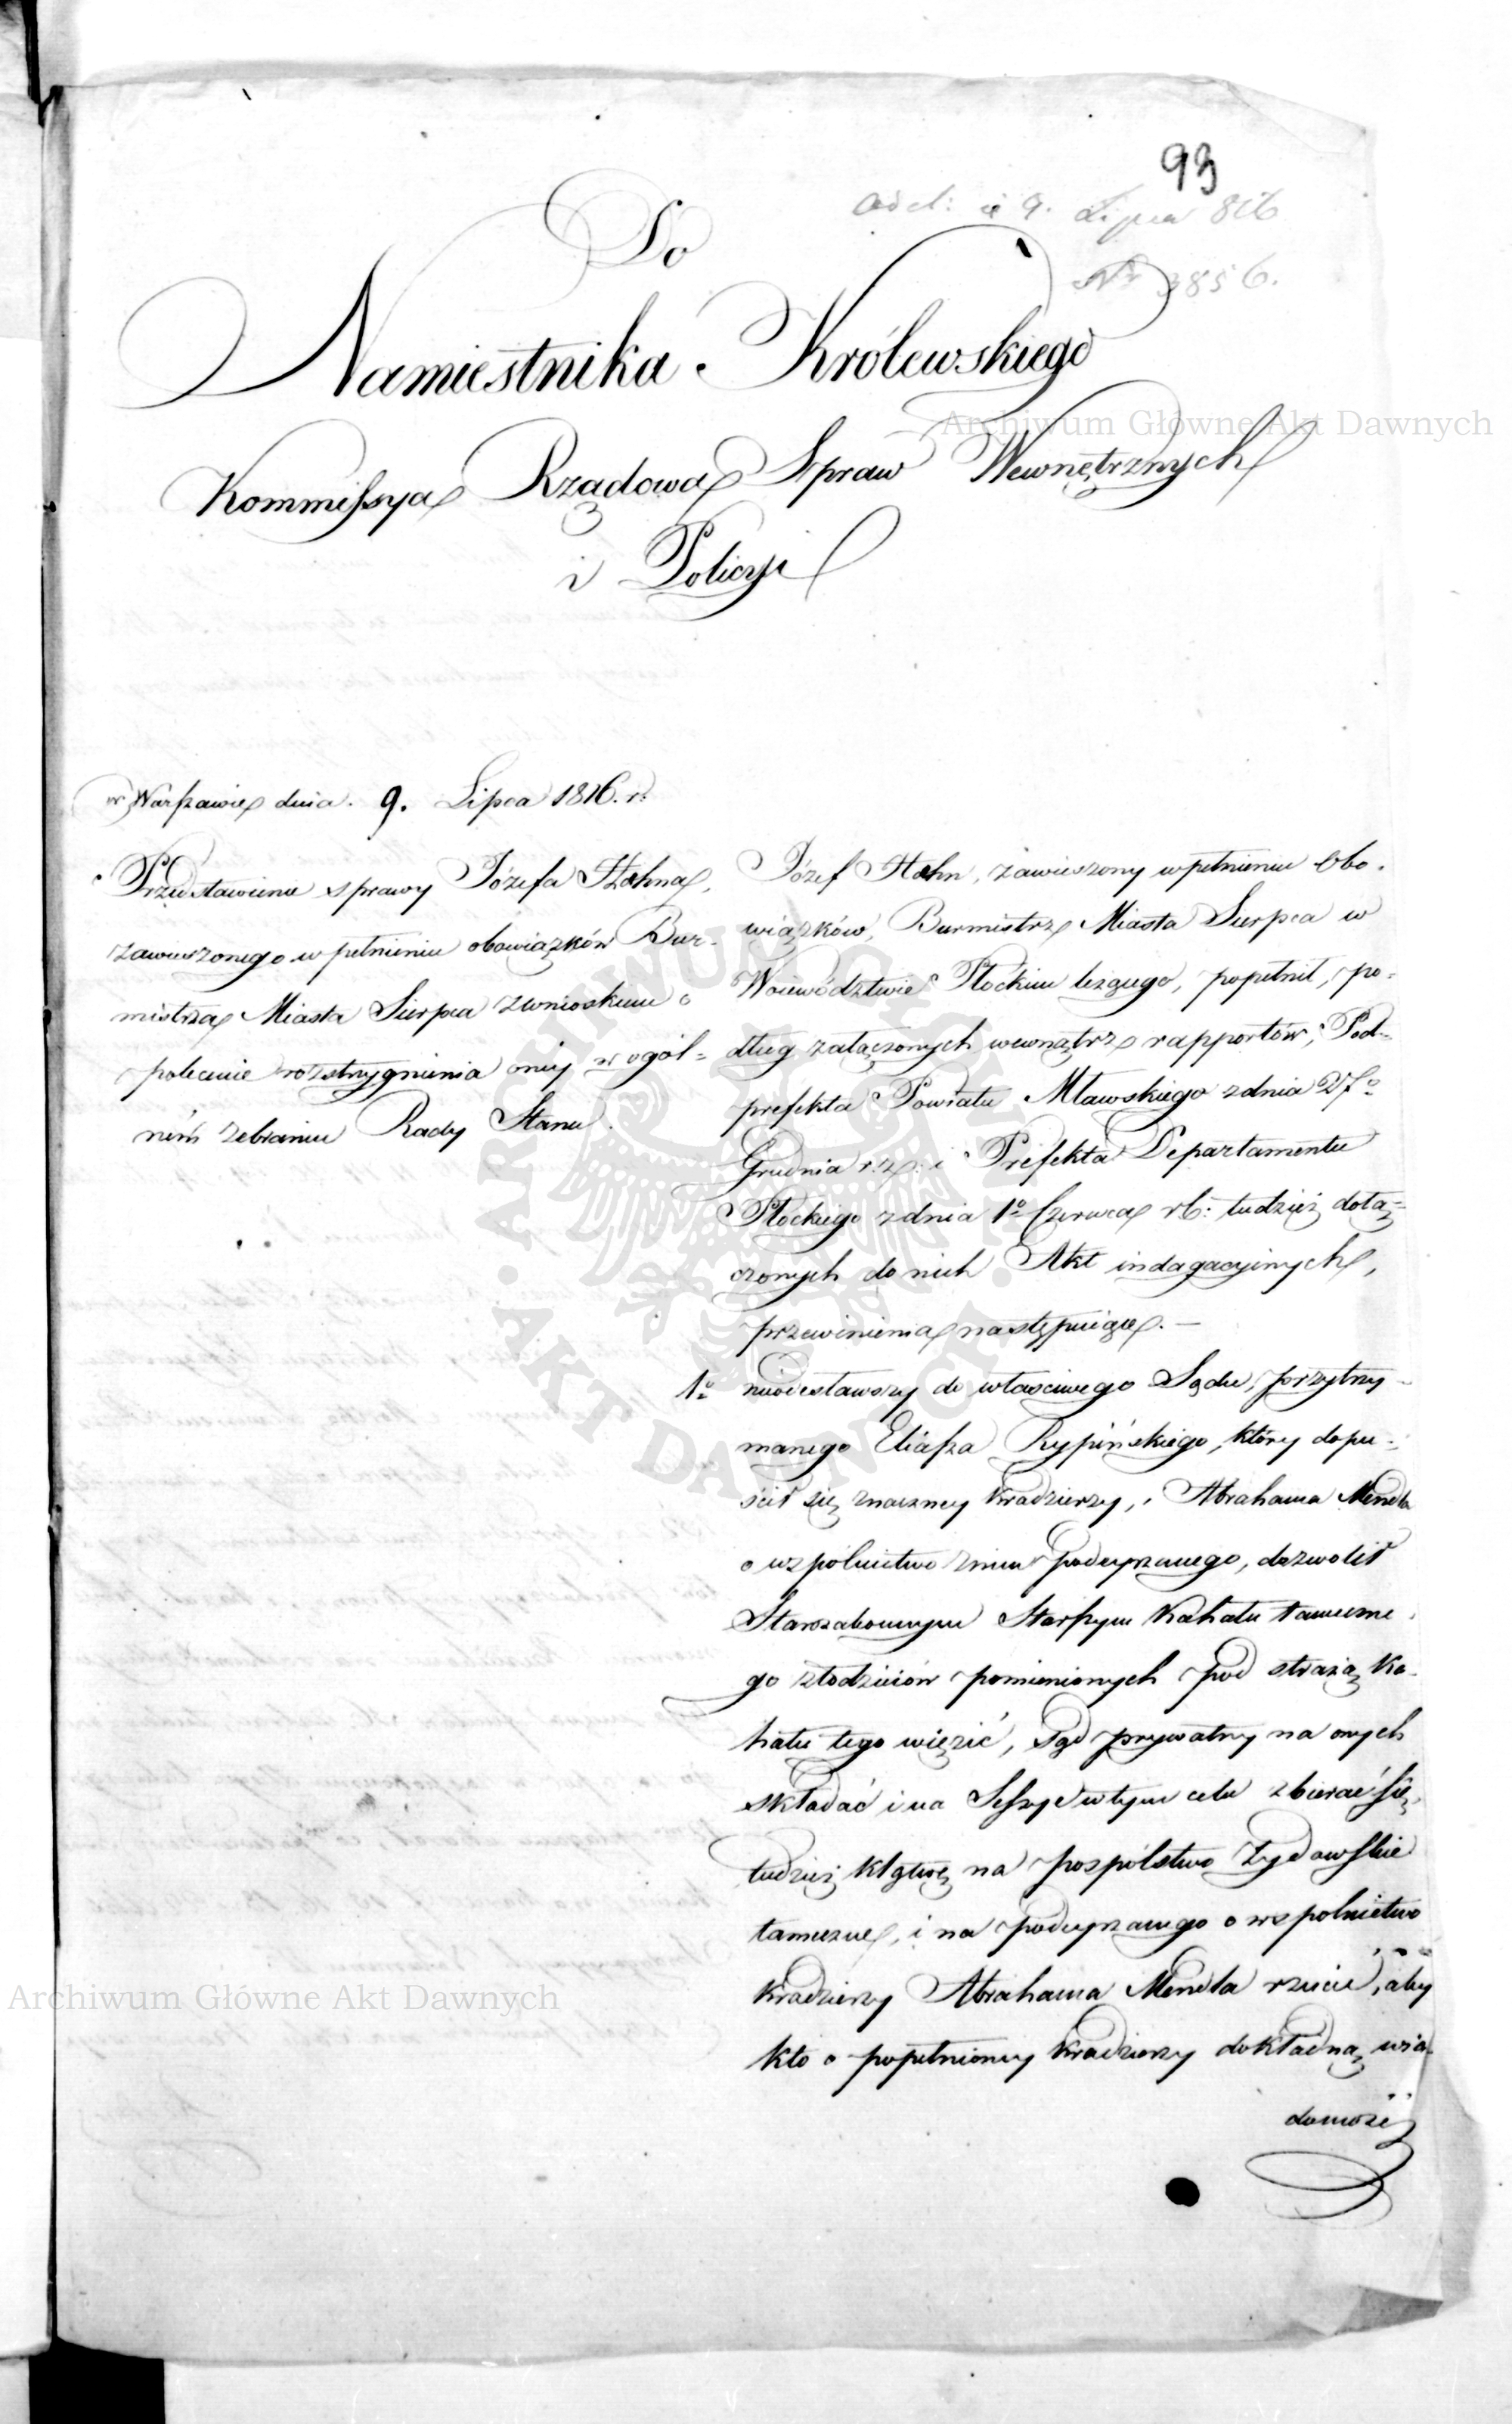 93
Odeł: d 9. Lipca 816
Nr 3856.
Do
Namiestnika Królewskiego
Kommissya Rządowa Spraw Wewnętrznych
i Policyi
w Warszawie dnia. 9. Lipca 1816. r.
Przedstawienie sprawy Józefa Hahna,
zawieszonego w pełnieniu obowiązków Bur-
mistrza Miasta Sierpca z wnioskiem o
polecenie rozstrzygnienia oney w ogól=
ném zebraniu Rady Stanu.
Józef Hahn, zawieszony w pełnieniu Obo-
wiązków, Burmistrz Miasta Sierpca w
Woiewództwie Płockim leżącego, popełnił, po=
dług załączonych wewnątrz rapportów, Pod-
prefekta Powiatu Mławskiego z dnia 27o
Grudnia r. z. i Prefekta Departamentu
Płockiego z dnia 1o Czerwca r b: tudzież dołą=
czonych do nich Akt indagacyinych,
przewinienia następuiące. —
1o nieodesławszy do właściwego Sądu, przytrzy-
manego Eliasza Rypińskiego, który dopu-
ścił się znaczney kradzierzy, i Abrahama Mendla
o wspólnictwo z nim podeyrzanego, dozwolił
Starozakonnym Starszym Kahału tameczne-
go złodzieiów pomienionych pod strażą Ka-
hału tego więzić, Sąd prywatny na onych
składać i na Sessye w tym celu zbierać się,
tudzież klątwę na pospólstwo Żydowskie
tameczne, i na podeyrzanego o wspolnictwo
kradzierzy Abrahama Mendla rzucić, aby
kto o popełnioney kradzierzy dokładną wia-
domość
Archiwum Główne Akt Dawnych
Archiwum Główne Akt Dawnych
ARCHIWUM GŁÓWNE
AKT DAWNYCH